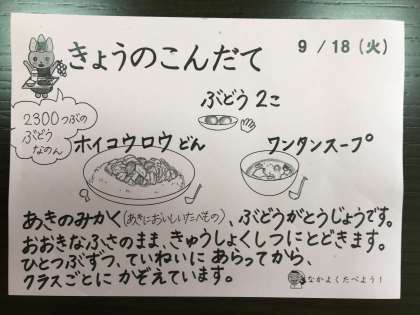 きょうのこんだて
9/18(火)
2300つぶの
ぶどう
なのん
ぶどう2こ
ホイコウロウどん
ワンタンスープ
あきのみかく(あきにおいしいたべもの)、ぶどうがとうじょうです。
おおきなふさのまま、きゅうしょくしつにとどきます。
ひとつぶずつ、ていねいにあらってから、
クラスごとにかぞえています。
なかよくたべよう!